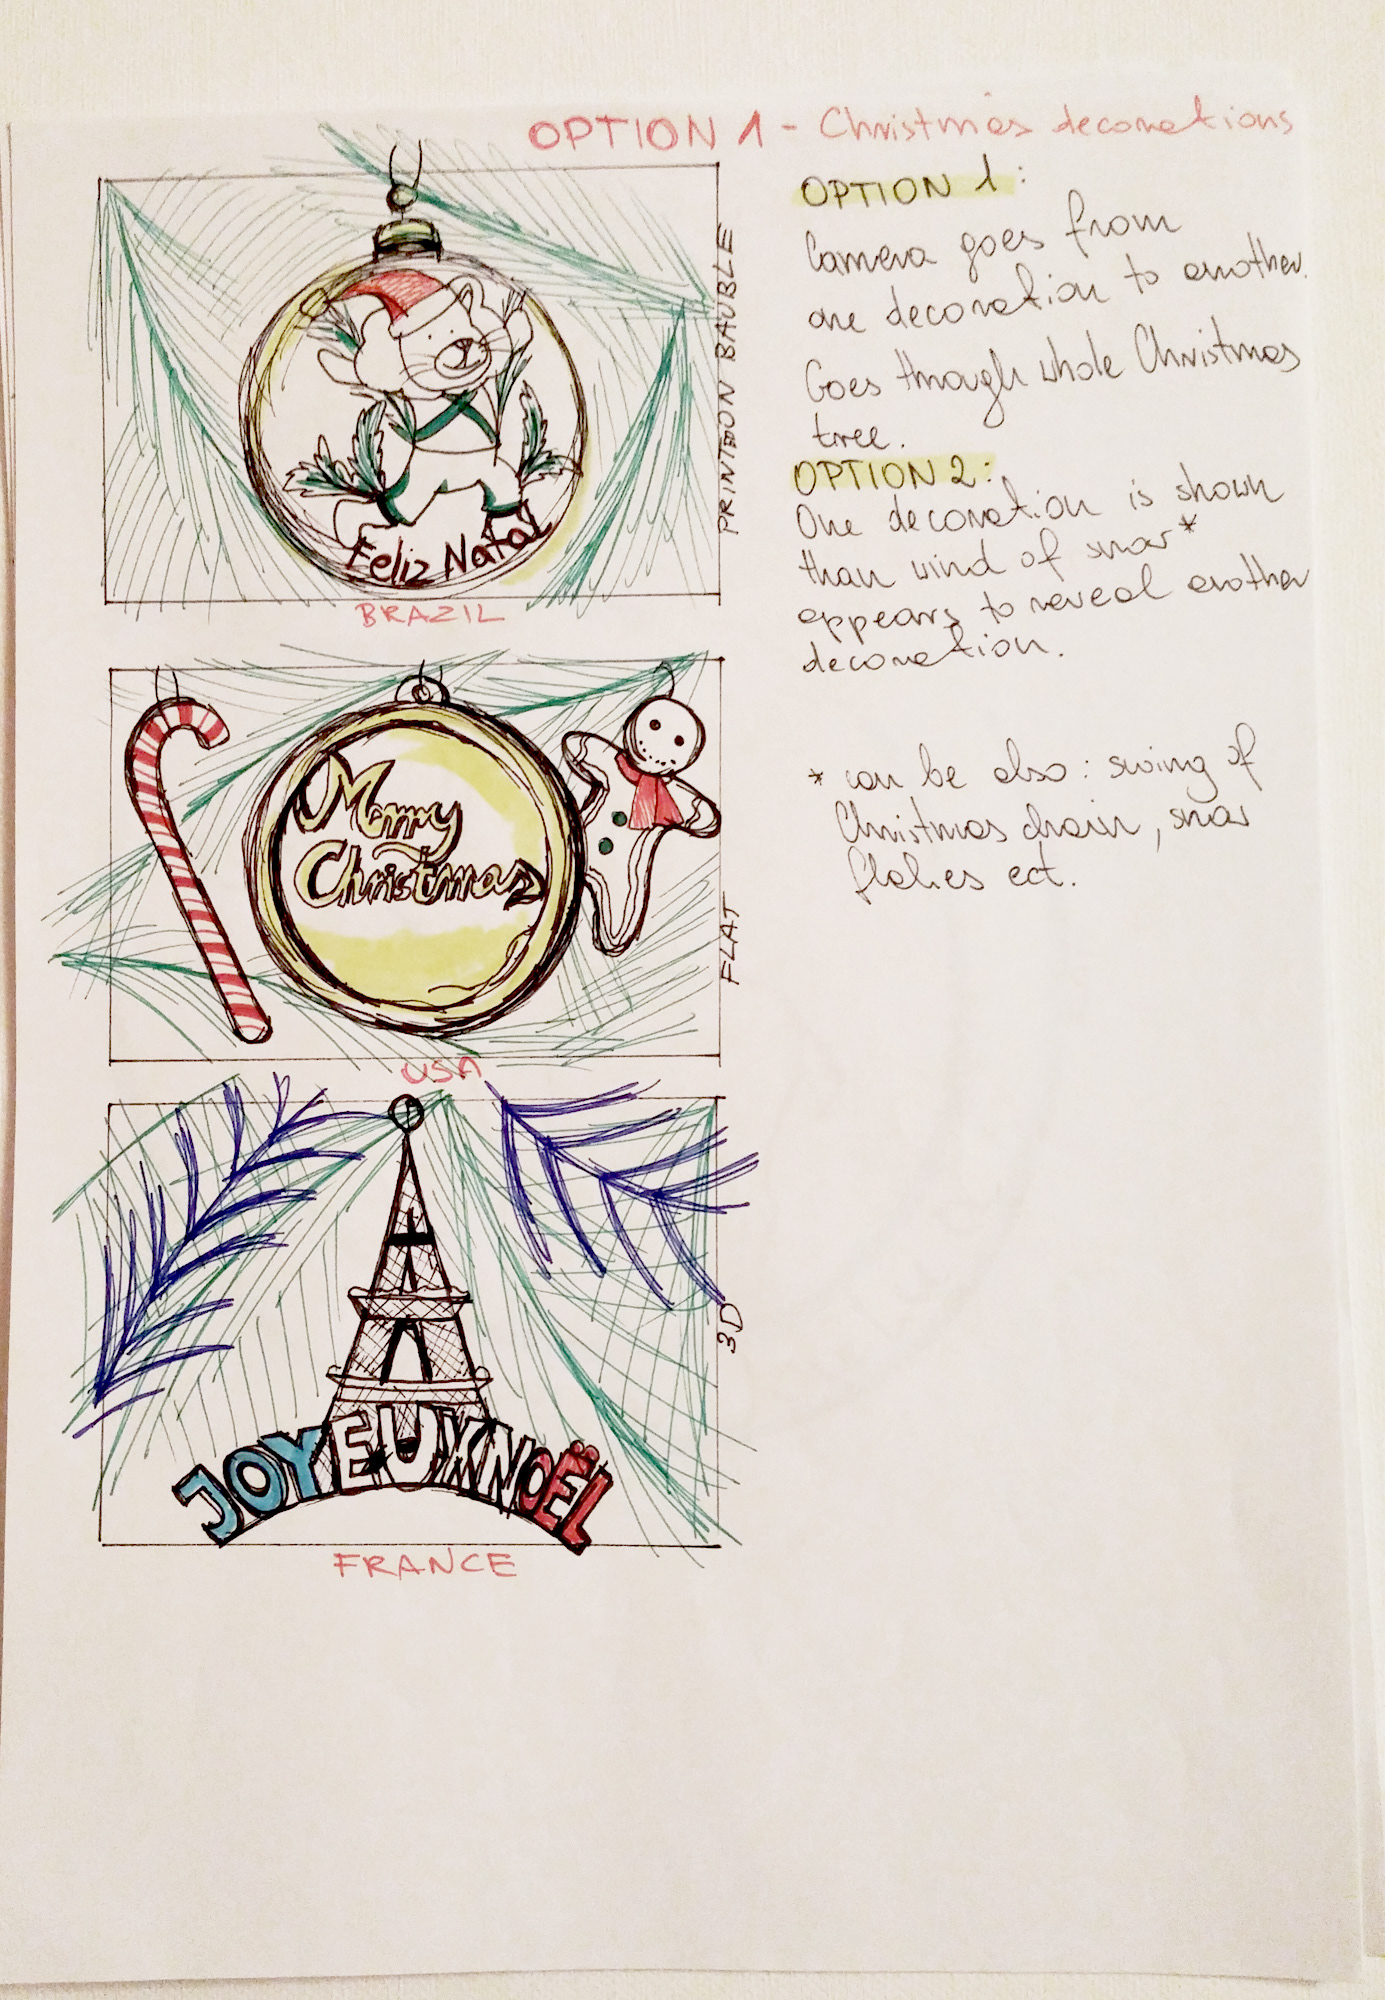 OPTION 1 - Christmas decorations
Feliz Natal
PRINT ON BAUBLE
BRAZIL
Merry
Christmas
FLAT
USA
JOYEUX NOËL
3D
FRANCE
OPTION 1:
Camera goes from
one decoration to another.
Goes through whole Christmas
tree.
OPTION 2:
One decoration is shown
than wind of snow*
appears to reveal another
decoration.
* can be also: swing of
Christmas chain, snow
flakes ect.